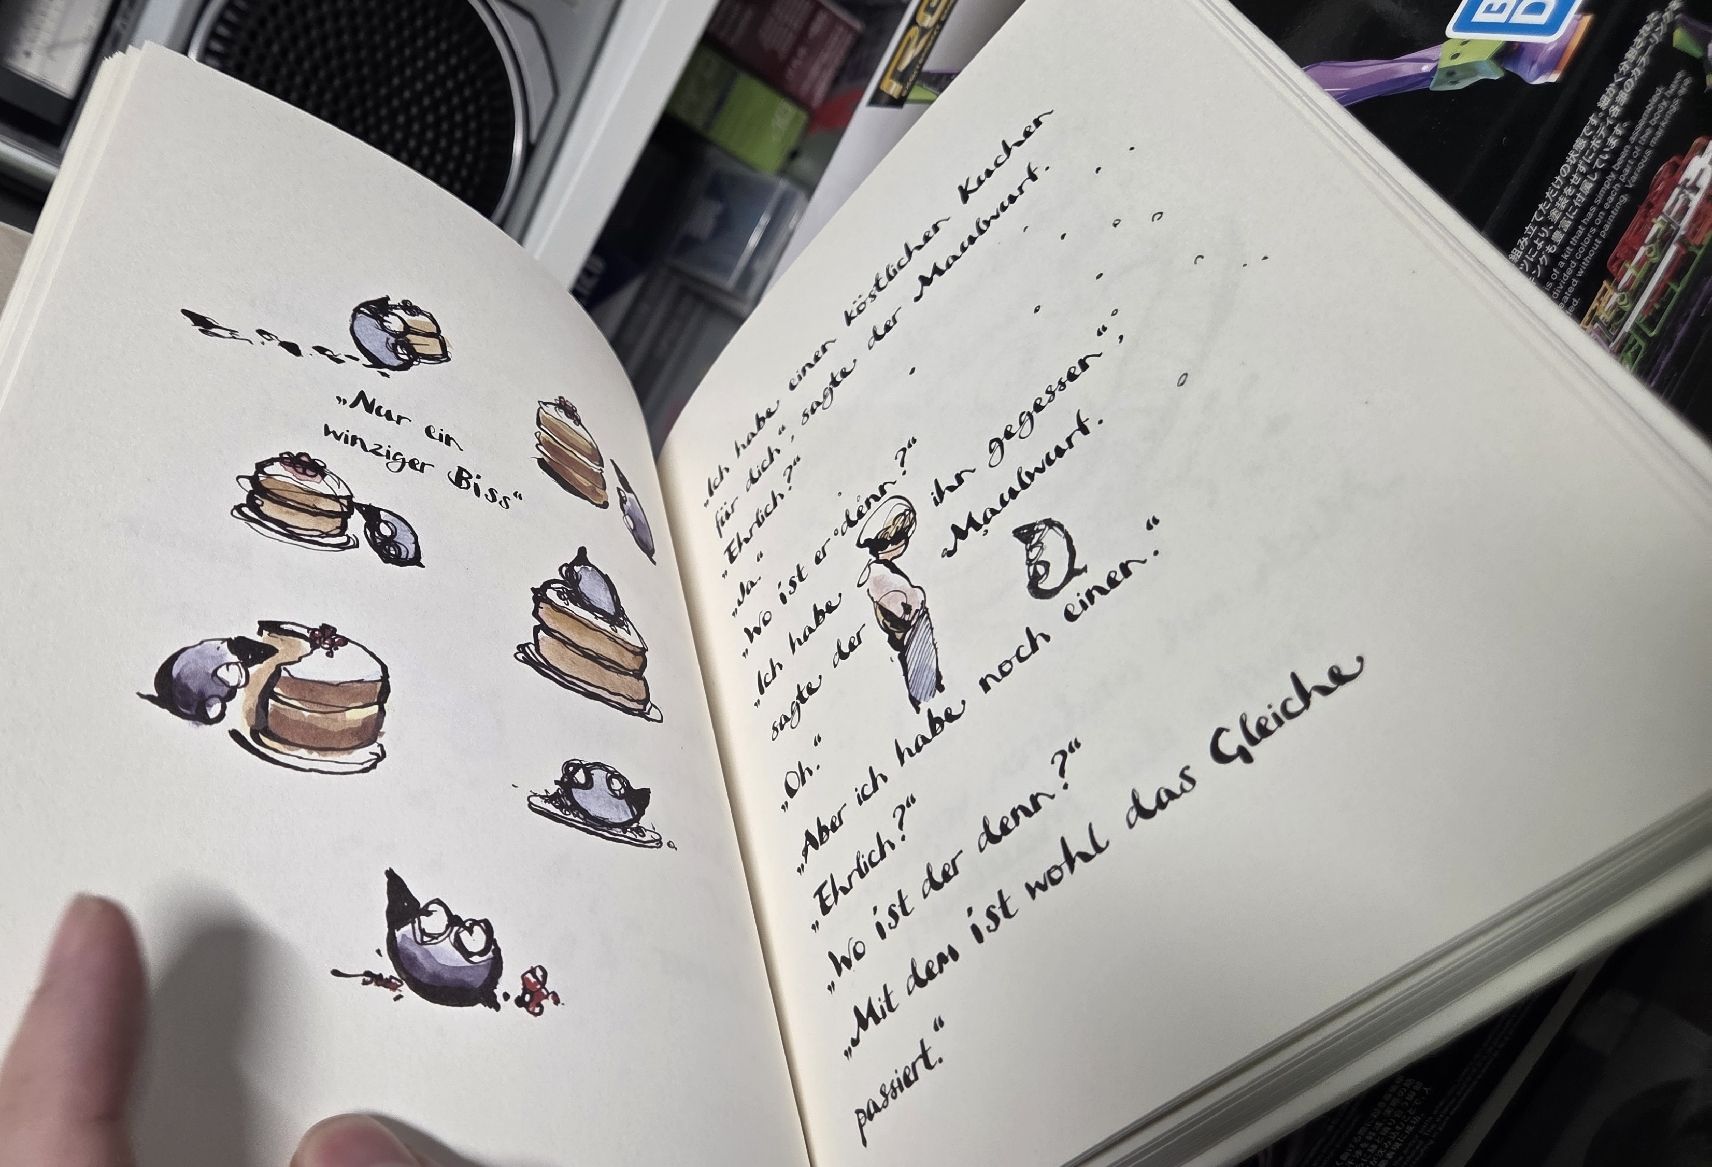 „Nur ein
winziger Biss“
„Ich habe einen köstlichen Kuchen
für dich“, sagte der Maulwurf.
„Ehrlich?“
„Ja.“
„Wo ist er denn?“
„Ich habe ihn gegessen“,
sagte der Maulwurf.
„Oh.“
„Aber ich habe noch einen.“
„Ehrlich?“
„Wo ist der denn?“
„Mit dem ist wohl das Gleiche
passiert.“